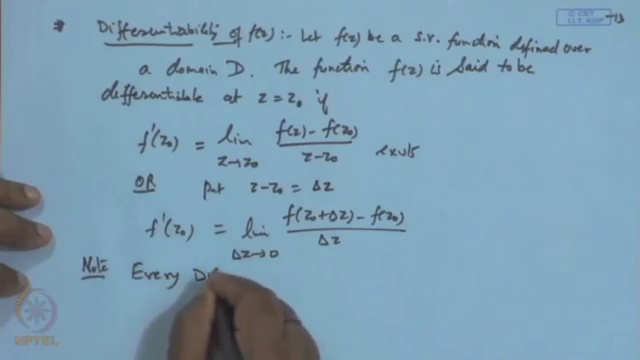 © CET
I.I.T. KGP
-13
* Differentiability of f(z) :- Let f(z) be a s.v. function defined over
a domain D. The function f(z) is said to be
differentiable at z = z₀ if
f'(z₀) = lim z→z₀ (f(z) - f(z₀))/(z - z₀) exists
OR put z - z₀ = Δz
f'(z₀) = lim Δz→0 (f(z₀+Δz) - f(z₀))/Δz
Note Every
NPTEL